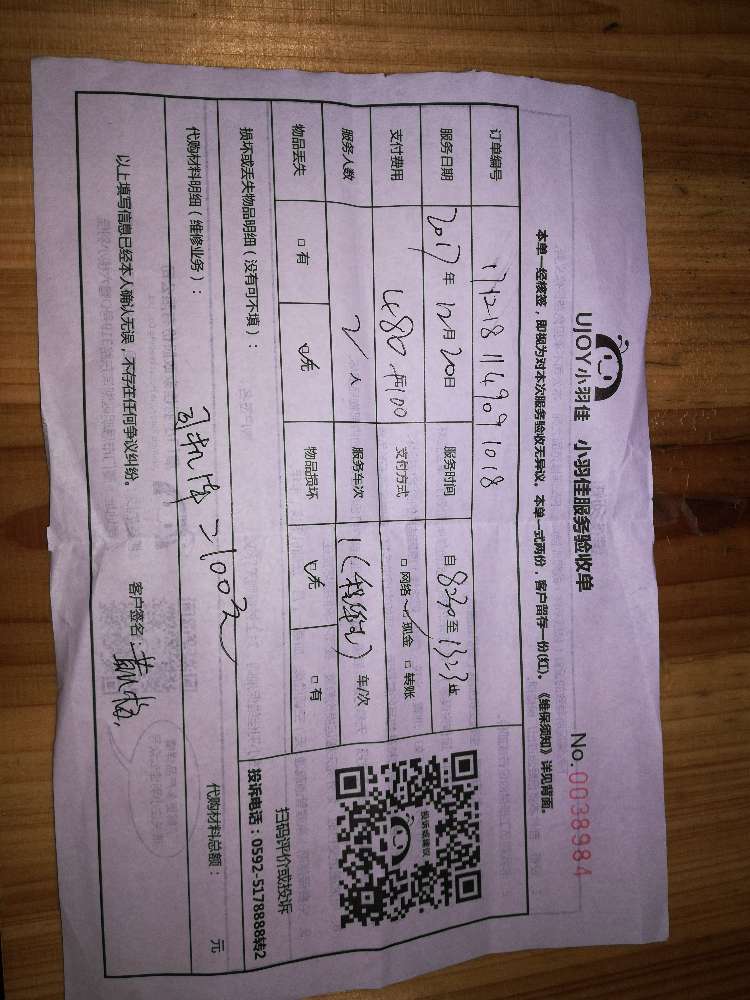 UJOY小羽佳 小羽佳服务验收单
No.0038984
本单一经核签，即视为对本次服务验收无异议。本单一式两份，客户留存一份(红)。《维保须知》详见背面。
订单编号 171218114909 1018
服务日期 2017年12月20日 服务时间 自8:30至13:23止
支付费用 480元+100 支付方式 □网络 现金 □转账
服务人数 2人 服务车次 1 车/次
物品丢失 □有 □无 物品损坏 □无 □有
损坏或丢失物品明细（没有可不填）：
代购材料明细（维修业务）： 代购材料总额： 元
100元
以上填写信息已经本人确认无误，不存在任何争议纠纷。 客户签名：
投诉或建议
扫码评价或投诉
投诉电话：0592-5178888转2